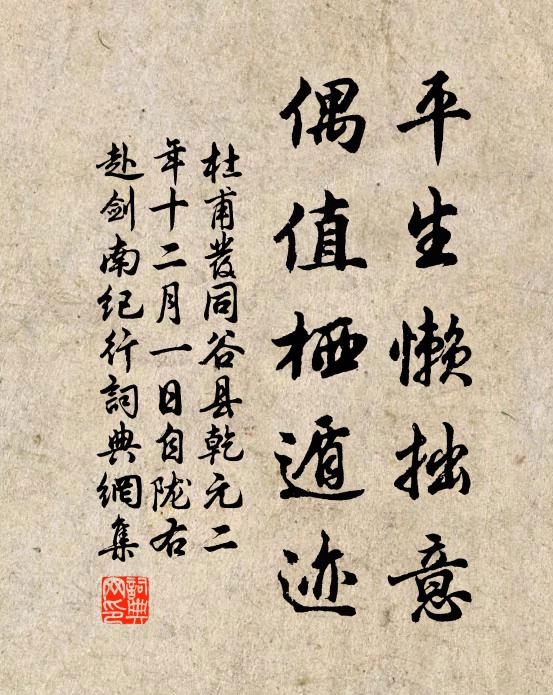 平生懒拙意
偶值栖遁迹
杜甫發同谷县乾元二
年十二月一日自陇右
赴剑南纪行詞典網集
詞典
网印